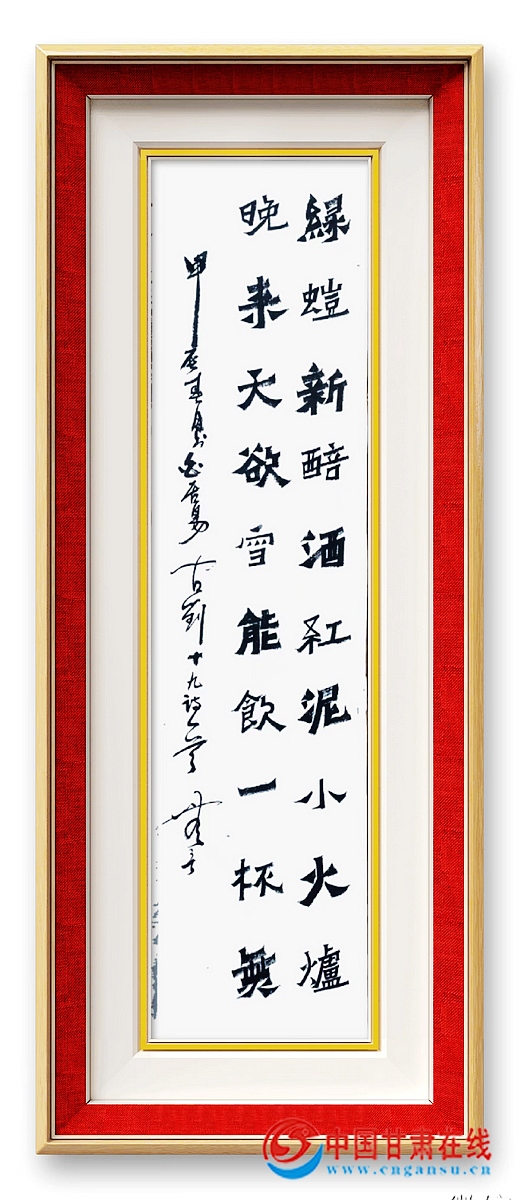 綠螘新醅酒紅泥小火爐
晚來天欲雪能飲一杯無
甲辰春白居易劉十九詩一首
中国甘肃在线
www.cngansu.cn